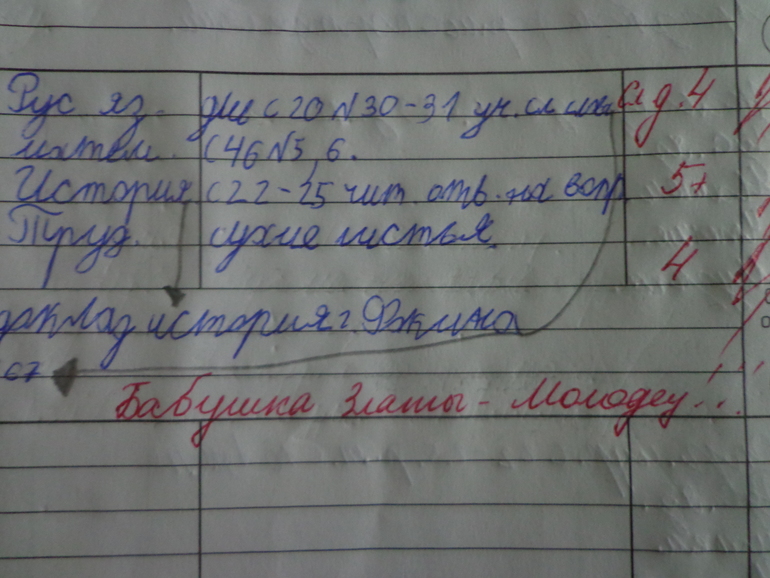 Рус яз. с 20 N 30-31 уч. сл. д. 4
матем. с 46 N 5, 6.
История с 22-25 чит. отв. на вопр 5+
Труд. сухие листья 4
доклад история г.
с 7
Бабушка Златы - Молодец!..